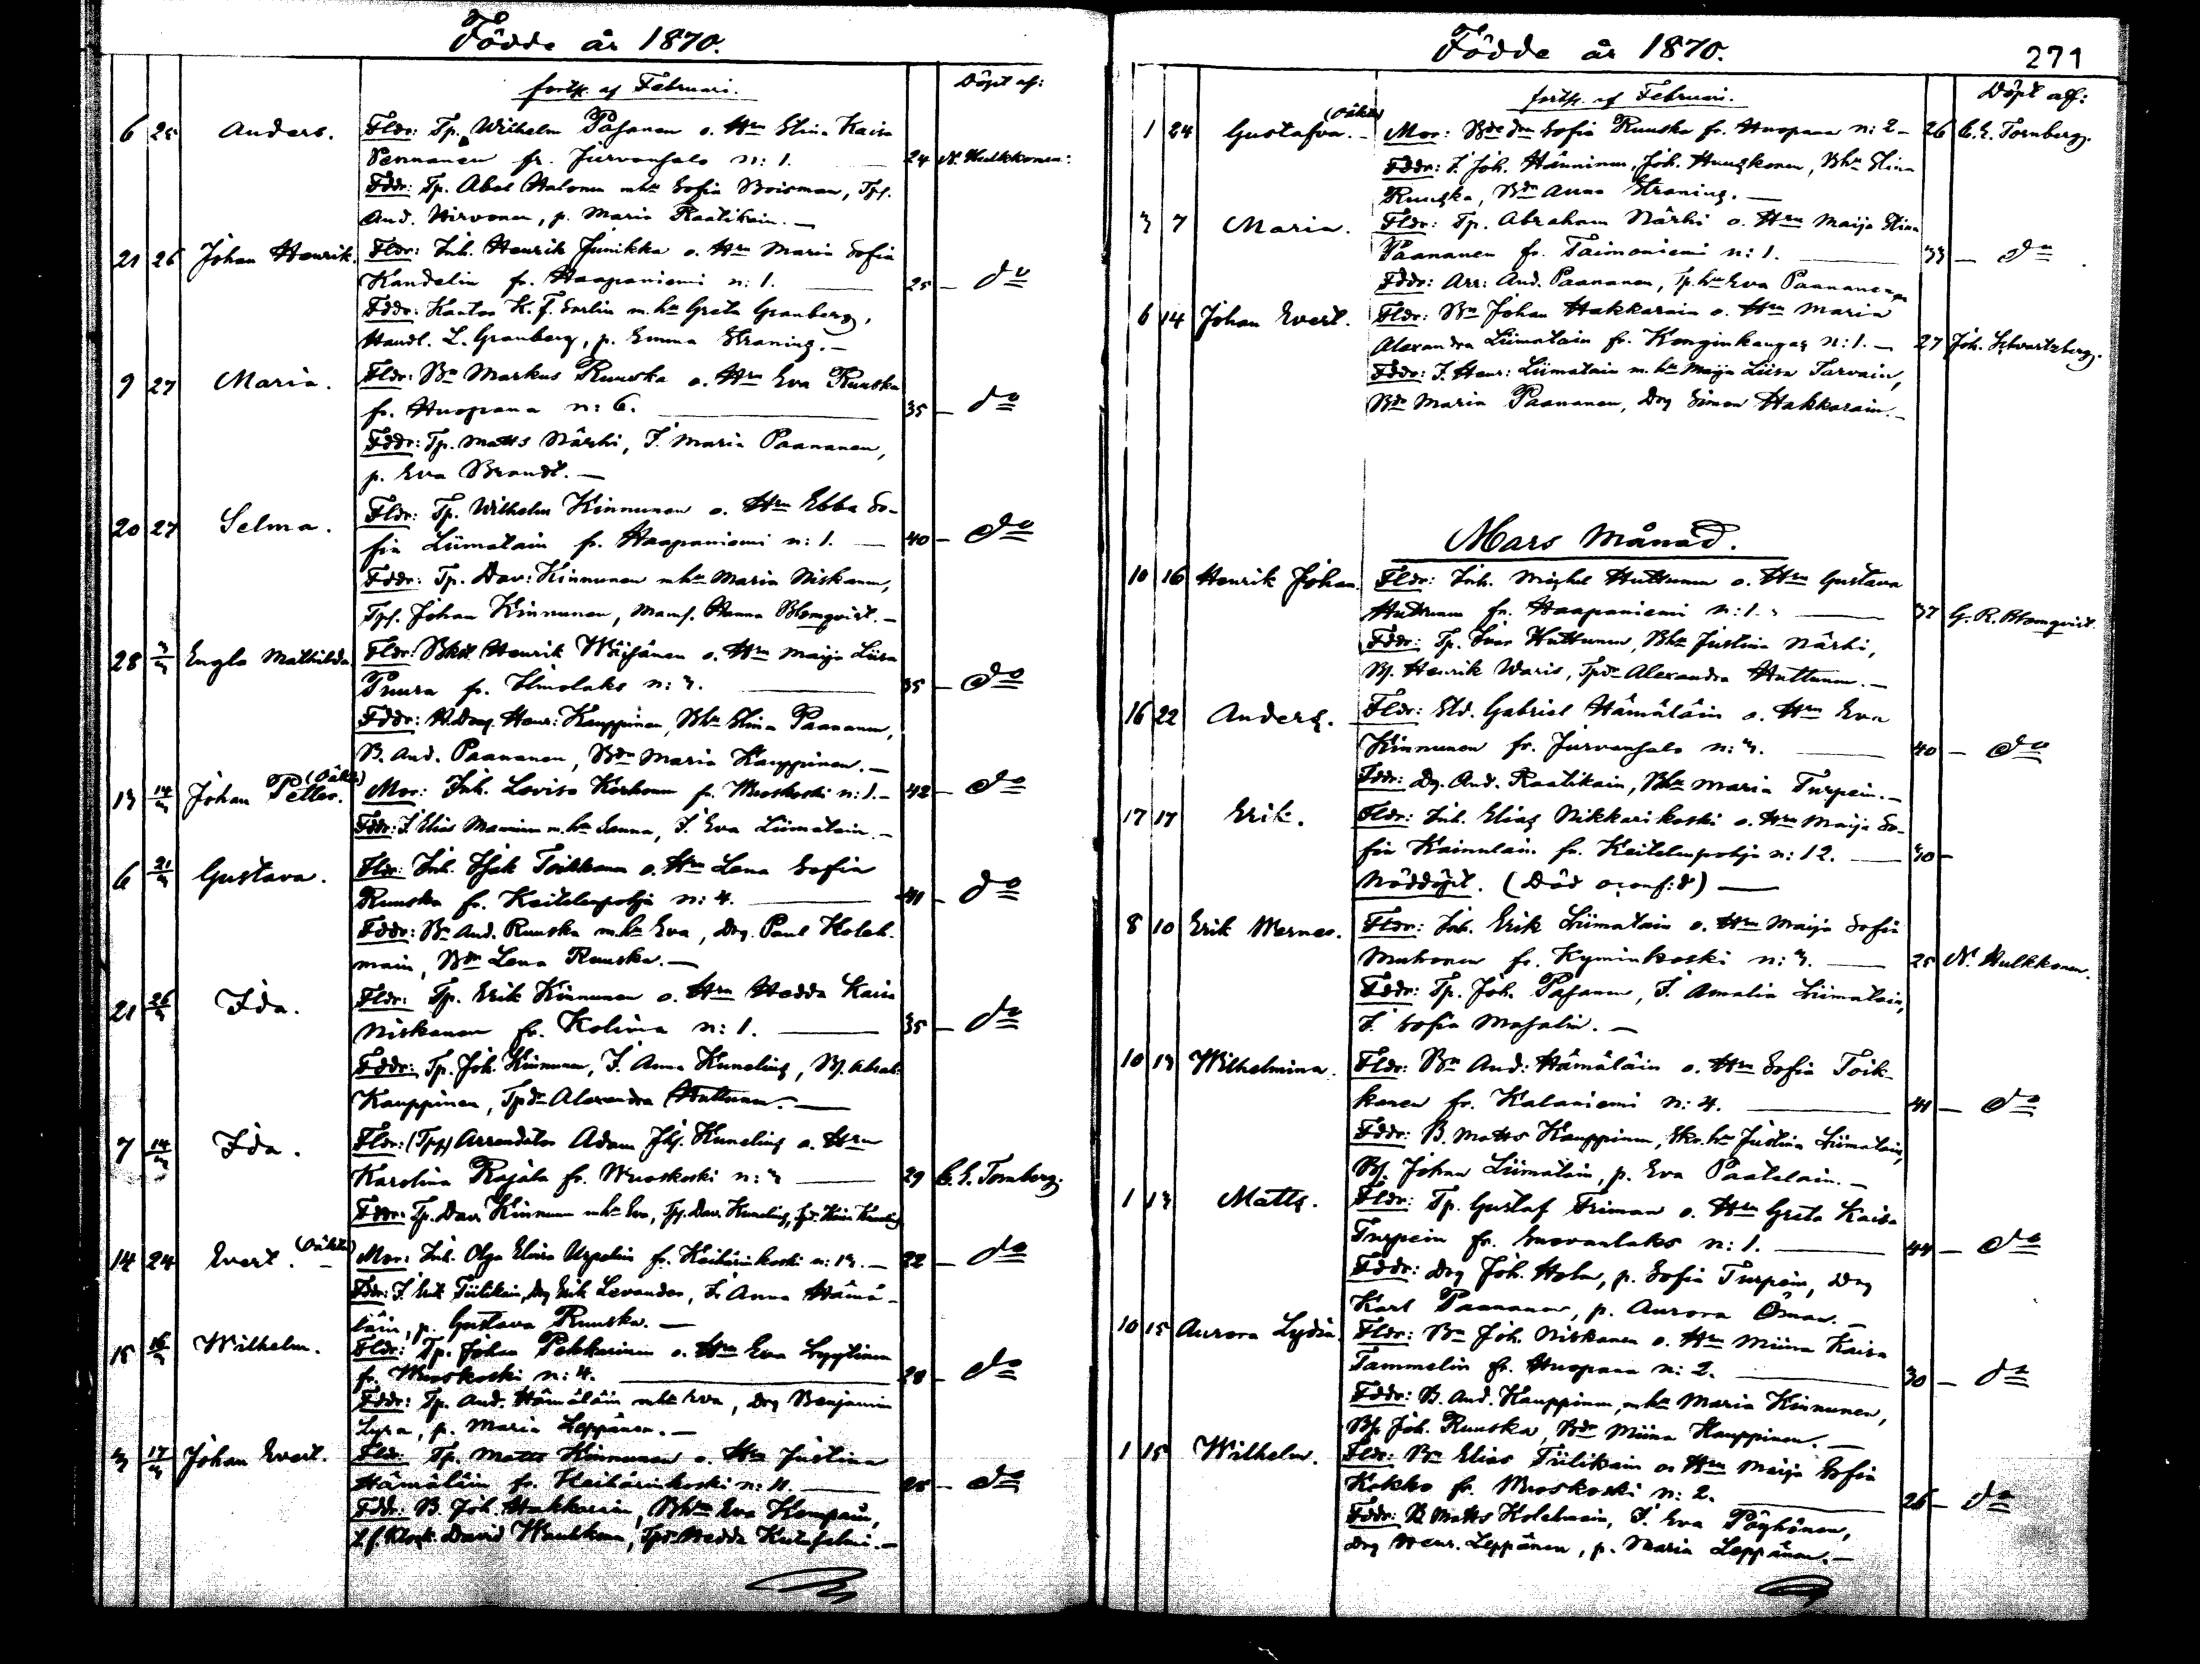 Födde år 1870.
fortst. af Februari.
Döpt af:
6 25 Anders. Fldr: Tp. Wilhelm Pasanen o. Hru Stina Kaisa
Pennanen fr. Jurvansalo n: 1. 24 N. Hulkkonen:
Fddr: Tp. Abel Halonen m hu Sofia Boisman, Tps.
And. Hirvonen, p. Maria Raatikain. —
21 26 Johan Henrik. Fldr: Inh. Henrik Junikka o. Hru Maria Sofia
Kandelin fr. Haapaniemi n: 1. 25 — do
Fddr: Kantor K. F. Enrlin m. hu Greta Granberg,
Handl. L. Granberg, p. Emma Straning. —
9 27 Maria. Fldr: Bn Markus Ruuska o. Hru Eva Ruuska
fr. Huopana n: 6. 35 — do
Fddr: Tp. Matts Närhi, I. Maria Paananen,
p. Eva Brandt. —
20 27 Selma. Fldr: Tp. Wilhelm Kinnunen o. Hru Ebba So-
fia Liimatain fr. Haapaniemi n: 1. — 40 — do
Fddr: Tp. Dav: Kinnunen m hu Maria Niskanen,
Tps. Johan Kinnunen, Mams. Hanna Blomqvist. —
28 3/3 Engla Mathilda Fldr: Henrik Wäisänen o. Hru Maija Liisa
Puura fr. Ilmolaks n: 3. 35 — do
Fddr: Henr: Kauppinen, Bhu Stina Paananen,
B. And. Paananen, Bdr Maria Kauppinen. —
13 14/3 Johan Petter. (oäkta) Mor: Inh. Lovisa Korhonen fr. Wuoskoski n: 1. — 42 — do
Fddr: I. Elias Manninen m. hu Sanna, I. Eva Liimatain. —
6 21/3 Gustava. Fldr: Inh. Isak Toikkanen o. Hru Lena Sofia
Ruuska fr. Keitelepohja n: 4. 41 — do
Fddr: Bn And. Ruuska m. hu Eva, Drg. Paul Koleh-
main, Bdr Lena Ruuska. —
21 26/3 Ida. Fldr: Tp. Erik Kinnunen o. Hru Hedda Kaisa
Niskanen fr. Kolima n: 1. 35 — do
Fddr: Tp. Joh. Kinnunen, I. Anna Kunelius, Bs. Abrah:
Kauppinen, Tpdr Alexandra Huttunen. —
7 14/3 Ida. Fldr: (Tpg) Arrendator Adam Kunelius o. Hru
Karolina Rajala fr. Wuoskoski n: 3 29 C. E. Tornberg.
Fddr: Tp. Dav. Kinnunen m hu Eva, Tps. Dav. Kunelius, Kunelius
14 24 Evert. (oäkta) Mor: Inh. Olga Elvira Urpelin fr. Keihärinkoski n: 13. — 22 — do
Fddr: I. Erik Tiilikain, Drg Erik Levander, I. Anna Hämä-
läin, p. Gustava Ruuska. —
15 16/3 Wilhelm. Fldr: Tp. Johan Pekkarinen o. Hru Eva Lyytinen
fr. Wuoskoski n: 4. 28 — do
Fddr: Tp. And. Hämäläin m hu Eva, Drg Benjamin
Lyra, p. Maria Leppänen. —
3 17/3 Johan Evert. Fldr: Tp. Matts Kinnunen o. Hru Justina
Hämäläin fr. Keihärinkoski n: 11. 25 — do
Fddr: B. Joh. Hakkarain, Bhu Eva Kompain,
David Tpdr Hedda —
Födde år 1870. 271
fortst. af Februari.
Döpt af:
1 24 Gustafva. (oäkta) — Mor: Sofia Ruuska fr. Huopana n: 2 — 26 C. E. Tornberg.
Fddr: I. Joh. Hänninen, Joh. Huuskonen, Bhu Stina
Ruuska, Bdr Anna Straning. —
3 7 Maria. Fldr: Tp. Abraham Närhi o. Hru Maija Stina
Paananen fr. Taimoniemi n: 1. 33 — do
Fddr: Arr: And. Paananen, Tp. hu Eva Paananen
6 14 Johan Evert. Fldr: Bn Johan Hakkarain o. Hru Maria
Alexandra Liimatain fr. Konginkangas n: 1. — 27 Joh. Schvartzberg.
Fddr: I. Henr: Liimatain m. hu Maija Liisa Tarvain,
Bdr Maria Paananen, Drg Simon Hakkarain. —
Mars Månad.
10 16 Henrik Johan. Fldr: Inh. Michel Huttunen o. Hru Gustava
Huttunen fr. Haapaniemi n: 1. 37 G. R. Blomqvist.
Fddr: Tp. Ivar Huttunen, Bhu Justina Närhi,
Bs. Henrik Waris, Tpdr Alexandra Huttunen. —
16 22 Anders. Fldr: Eld. Gabriel Hämäläin o. Hru Eva
Kinnunen fr. Jurvansalo n: 3. 40 — do
Fddr: Dg. And. Raatikain, Bhu Maria Turpein. —
17 17 Erik. Fldr: Inh. Elias Nikkarikoski o. Hru Maija So-
fia Kainulain. fr. Keitelepohja n: 12. — 30 —
Nöddöpt. (Död oconf:d) —
8 10 Erik Werner. Fldr: Inh. Erik Liimatain o. Hru Maija Sofia
Muhonen fr. Kyminkoski n: 3. — 25 N. Hulkkonen.
Fddr: Tp. Joh. Pasanen, I. Amalia Liimatain,
I. Sofia Masalin. —
10 13 Wilhelmina. Fldr: Bn And: Hämäläin o. Hru Sofia Toik-
kanen fr. Kalaniemi n: 4. 41 — do
Fddr: B. Matts Kauppinen, hu Justina Liimatain,
Bs. Johan Liimatain, p. Eva Paatelain. —
1 13 Matts. Fldr: Tp. Gustaf Friman o. Hru Greta Kaisa
Turpein fr. Suovanlaks n: 1. 44 — do
Fddr: Drg Joh. Holm, p. Sofia Turpein, Drg
Karl Paananen, p. Aurora Öman. —
10 15 Aurora Lydia. Fldr: Bn Joh. Niskanen o. Hru Miina Kaisa
Tammelin fr. Huopana n: 2. 30 — do
Fddr: B. And. Kauppinen, m hu Maria Kinnunen,
Bs. Joh. Ruuska, Bdr Miina Kauppinen. —
1 15 Wilhelm. Fldr: Bn Elias Tiilikain o. Hru Maija Sofia
Kokko fr. Wuoskoski n: 2. 26 — do
Fddr: B. Matts Kolehmain, I. Eva Pöyhönen,
Drg Henr. Leppänen, p. Maria Leppänen. —